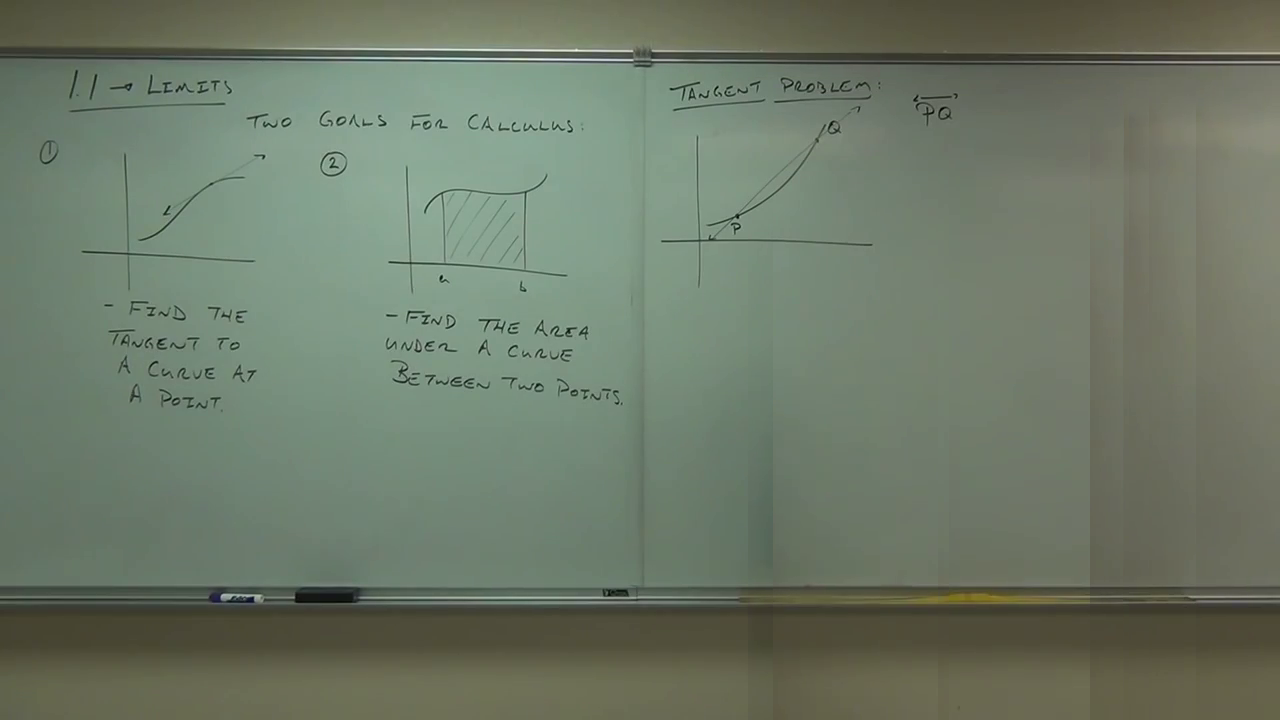 1.1 → LIMITS
TWO GOALS FOR CALCULUS:
①
- FIND THE
TANGENT TO
A CURVE AT
A POINT.
②
a b
- FIND THE AREA
UNDER A CURVE
BETWEEN TWO POINTS.
TANGENT PROBLEM:
PQ
Q
P